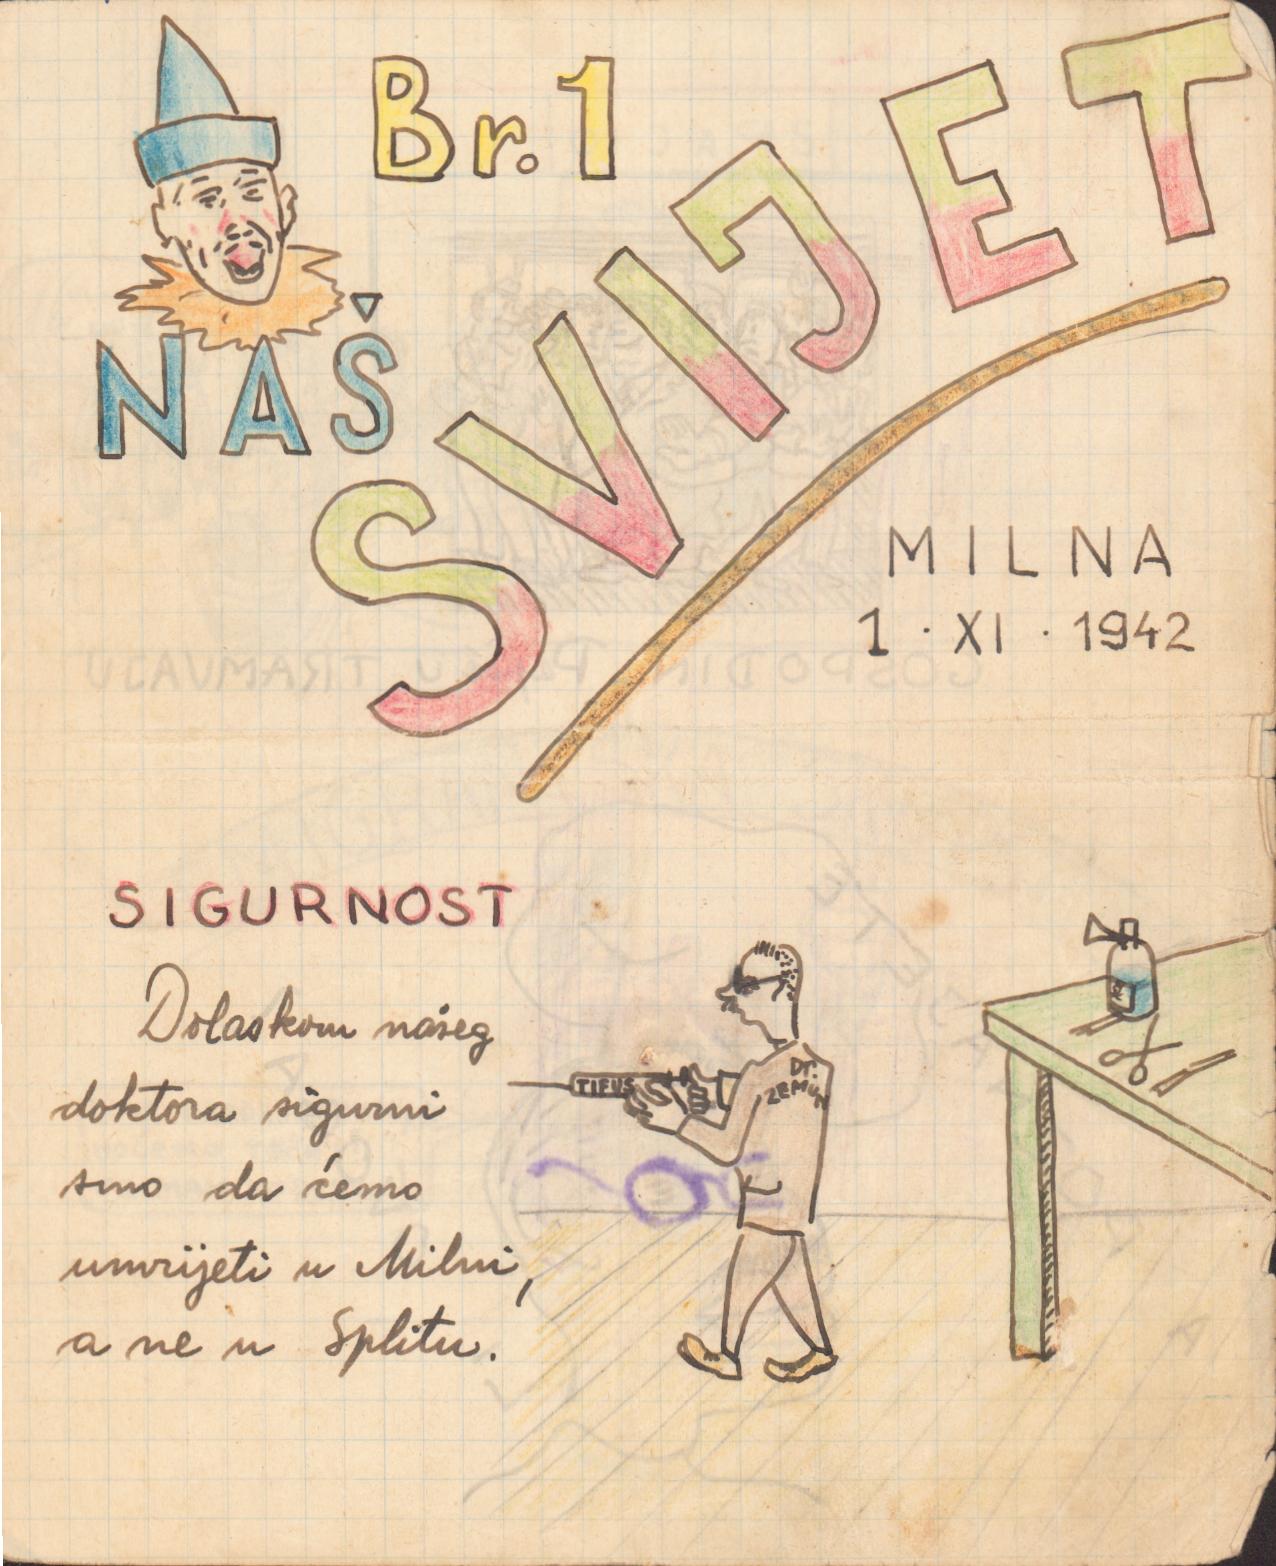 Br. 1
NAŠ
SVIJET
MILNA
1 · XI · 1942
SIGURNOST
Dolaskom našeg
doktora sigurni
smo da ćemo
umrijeti u Milni,
a ne u Splitu.
TIFUS
Dr.
ZEMUN